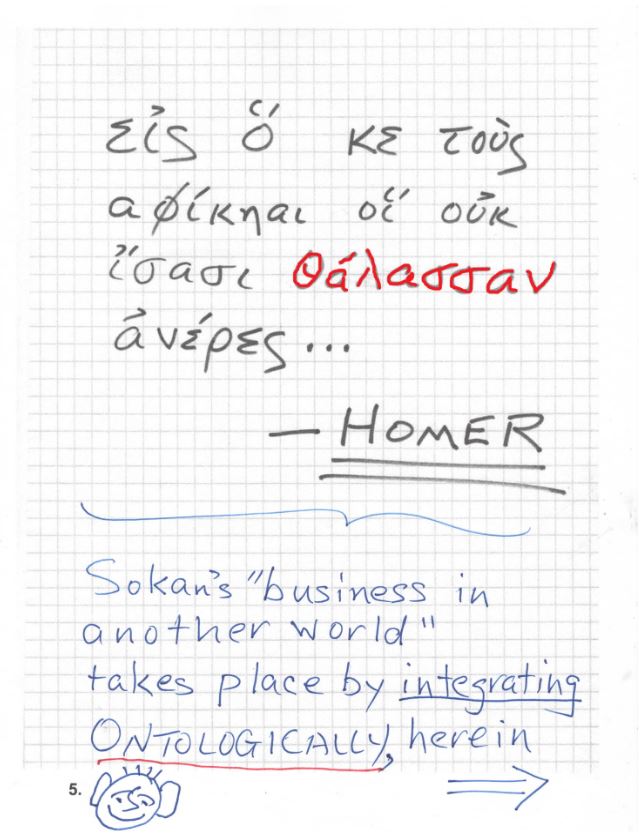 εἰς ὅ κε τοὺς
αφίκηαι οἵ οὐκ
ἴσασι θάλασσαν
ἀνέρες...
— HOMER
Sokan's "business in
another world"
takes place by integrating
ONTOLOGICALLY, herein
5.